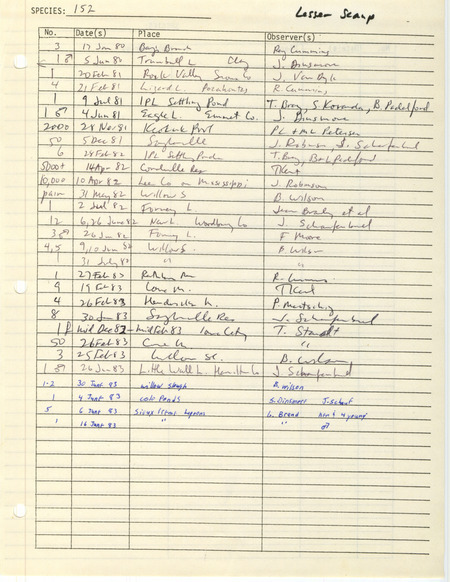 SPECIES: 152 Lesser Scaup
No. Date(s) Place Observer(s)
3 17 Jan 80 Ray Cummins
1♂ 5 Jun 81 Trumbull L Clay J. Dinsmore
1 20 Feb 81 Rock Valley Sioux Co J. Van Dyk
4 21 Feb 81 Lizard L. Pocahontas R. Cummins
1 9 Jul 81 IPL Settling Pond T. Bray, S. Kovanda, B. Padelford
1 6♂ 4 Jun 81 Eagle L. Emmet Co. J. Dinsmore
2000 28 Nov 81 Keokuk Port PC + MC Petersen
50 5 Dec 81 Saylorville J. Robinson, J. Schaufenbuel
6 28 Feb 82 IPL Settling Ponds T. Bray, B+L Padelford
5000+ 14 Apr 82 Coralville Res TKent
10,000 10 Apr 82 Lee Co on Mississippi J. Robinson
pair 31 May 82 Willow S B. Wilson
1 2 Forney L et al
12 6,26 June 82 New L. Woodbury Co J. Schaufenbuel
3♂ 26 Jun 82 Forney L. F Moore
4,5 9,10 Jun 82 Willow S. B. Wilson
1 31 July 82 " "
1 27 Feb 83 R. Cummins
9 19 Feb 83 Lone M. TKent
4 26 Feb 83 P. Mertschig
8 30 Jan 83 Saylorville Res J. Schaufenbuel
1 mid Dec 82–mid Feb 83 Iowa City T. Staudt
50 26 Feb 83 "
3 25 Feb 83 Willow Sl. B. Wilson
1♂ 26 Jun 83 Little Wall L. Hamilton Co J. Schaufenbuel
1-2 30 June 83 willow slough B. wilson
1 4 June 83 colo Ponds S. Dinsmore J. Schauf
5 6 June 83 Sioux City lagoons G. Brand hen + 4 young
1 16 June 83 " " ♂